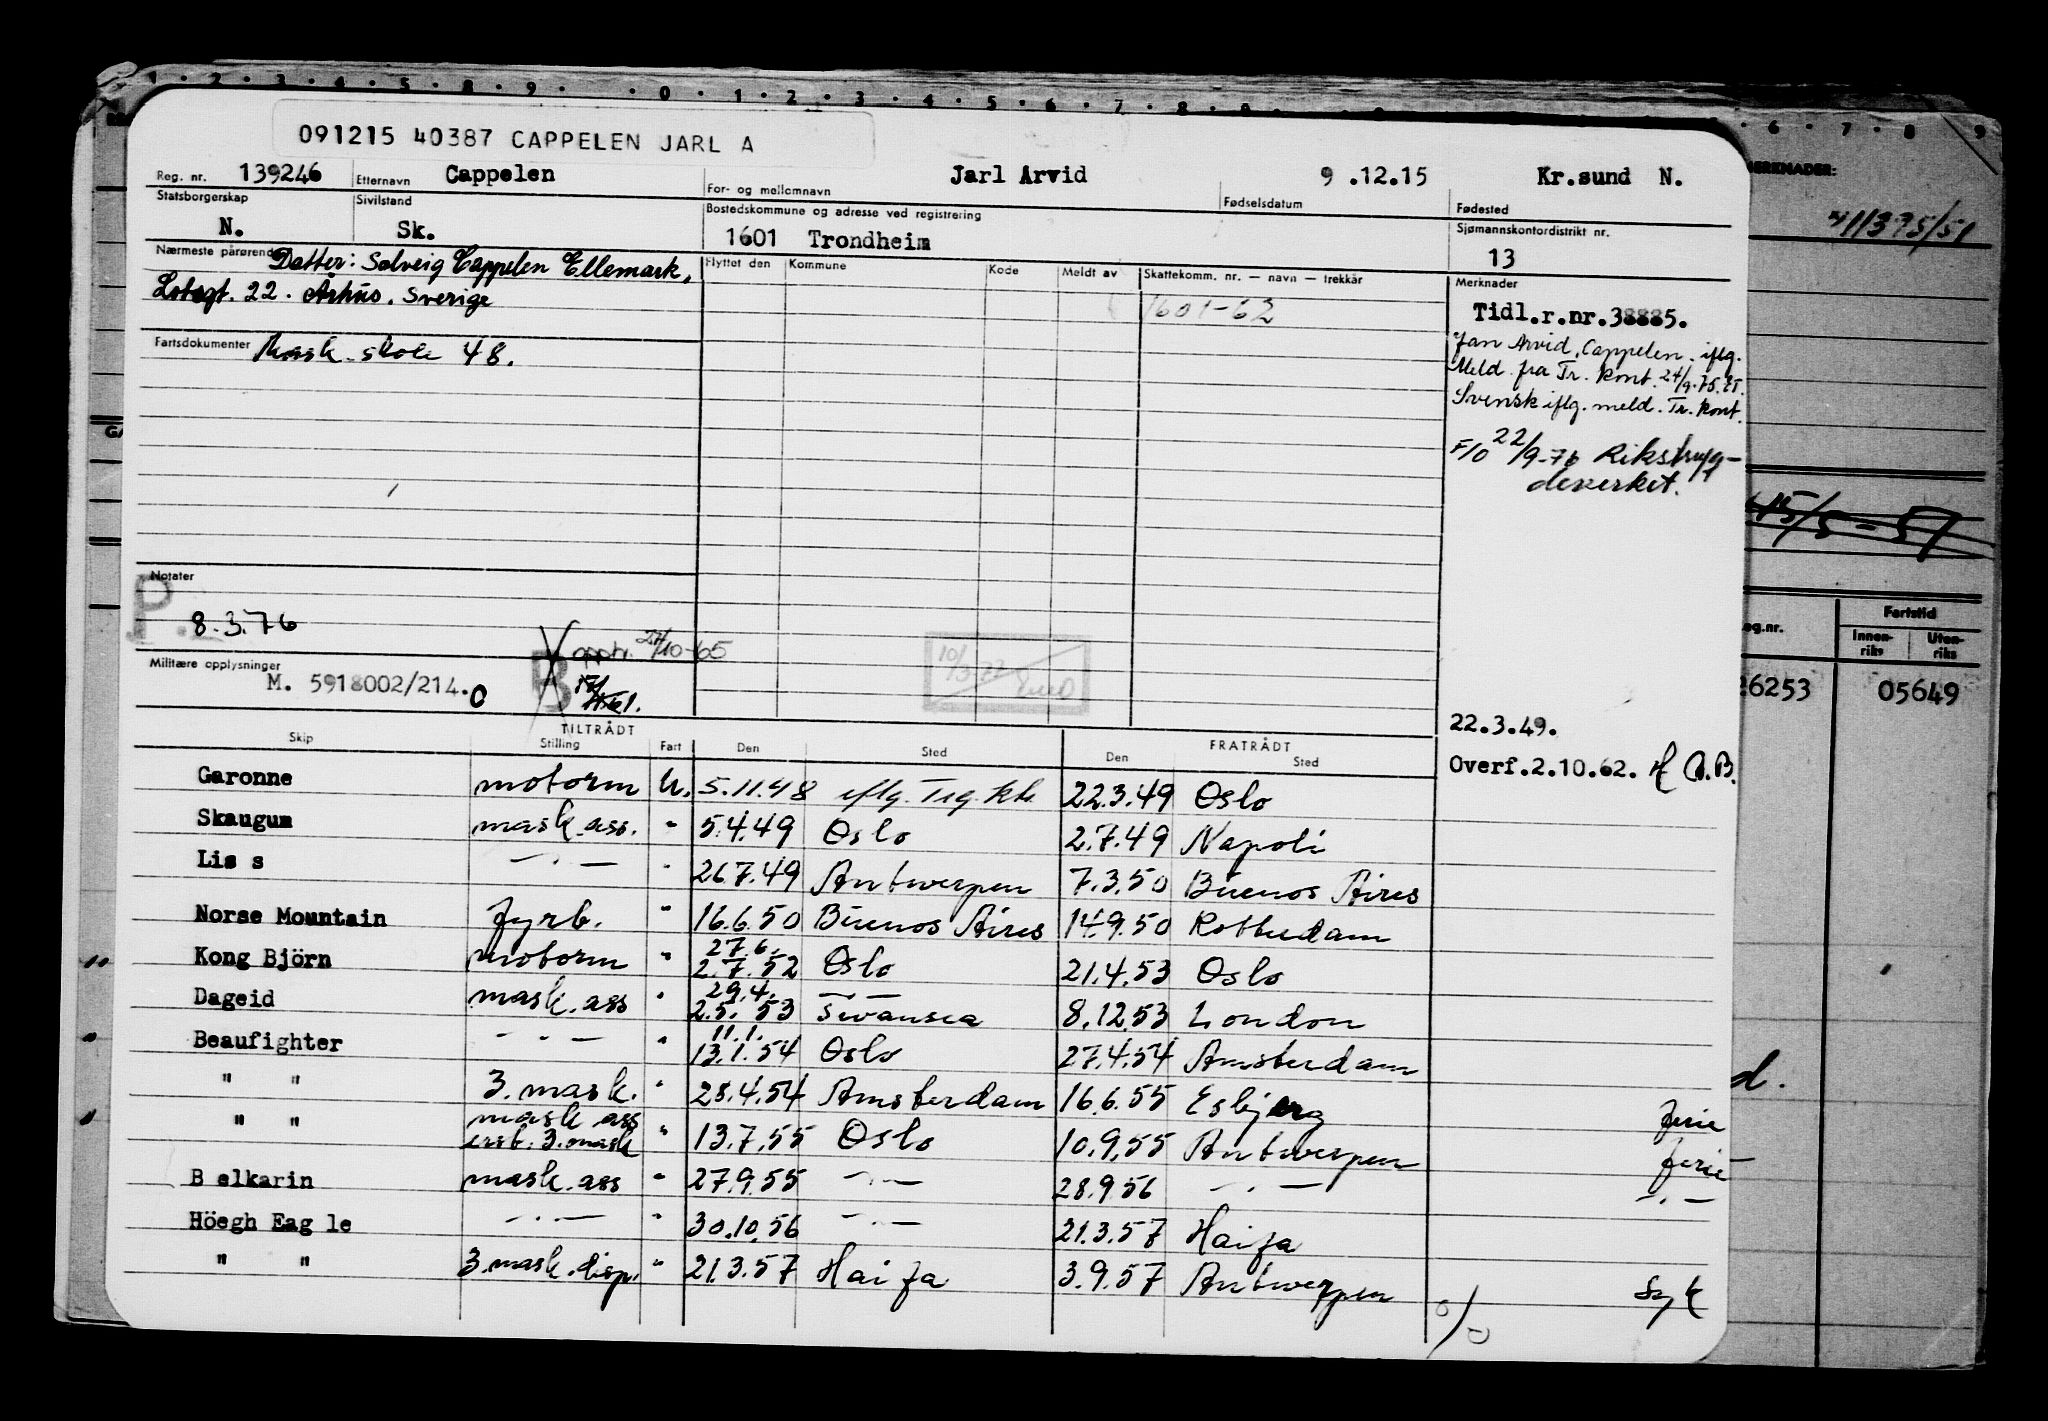 091215 40387 CAPPELEN JARL A
Reg. nr. 139246 Etternavn Cappelen For- og mellomnavn Jarl Arvid Fødselsdatum 9 .12.15 Fødested Kr.sund N.
Statsborgerskap N. Sivilstand Sk. Bostedskommune og adresse ved registrering 1601 Trondheim Sjømannskontordistrikt nr. 13
Nærmeste pårørende Datter: Solveig Cappelen Ellemark,
22. Århus. Sverige
Flyttet den Kommune Kode Meldt av Skattekomm. nr. — navn — trekkår
1601-62
Merknader
Tidl.r.nr.38885.
Jan Arvid Cappelen. iflg.
Meld. fra Tr. kont. 24/9-75.
Svensk iflg. meld. Tr. kont.
F/O 22/9-76 Rikstryg-
deverket.
Fartsdokumenter Mask. skole 48.
Notater
P
8.3.76
Militære opplysninger
M. 5918002/214.0
B
22.3.49.
Overf.2.10.62.
TILTRÅDT FRATRÅDT
Skip Stilling Fart Den Sted Den Sted
Garonne motorm U. 5.11.48 iflg. 22.3.49 Oslo
Skaugum mask.ass. " 5.4.49 Oslo 2.7.49 Napoli
Lis s —.— " 26.7.49 Antwerpen 7.3.50 Buenos Aires
Norse Mountain fyrb. " 16.6.50 Buenos Aires 14.9.50 Rotterdam
Kong Björn motorm " 27.6. 2.7.52 Oslo 21.4.53 Oslo
Dageid mask.ass " 29.4. 2.5.53 —.— Swansea 8.12.53 London
Beaufighter —.— " 11.1. 13.1.54 Oslo 27.4.54 Amsterdam
" " 3.mask. " 28.4.54 Amsterdam 16.6.55 Esbjerg ferie
" " mask ass erst. 3.mask " 13.7.55 Oslo 10.9.55 Antwerpen ferie
B elkarin mask.ass " 27.9.55 —.— 28.9.56 —.— —.—
Höegh Eag le —.— " 30.10.56 —.— 21.3.57 Haifa
" " 3.mask.disp. " 21.3.57 Haifa 3.9.57 Antwerpen Syk
MERKNADER:
Fartstid
Innen-riks Uten-riks
26253 05649